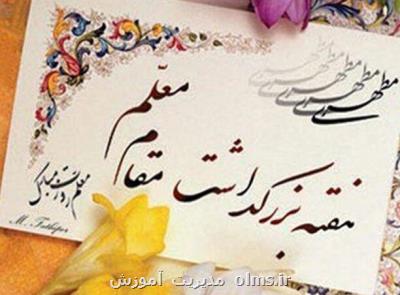 مطهری
مطهری
مطهری
مطهری
هفته بزرگداشت مقام معلّم
معلم روزت مبارک
M. Fathipor
olms.ir مدیریت آموزش